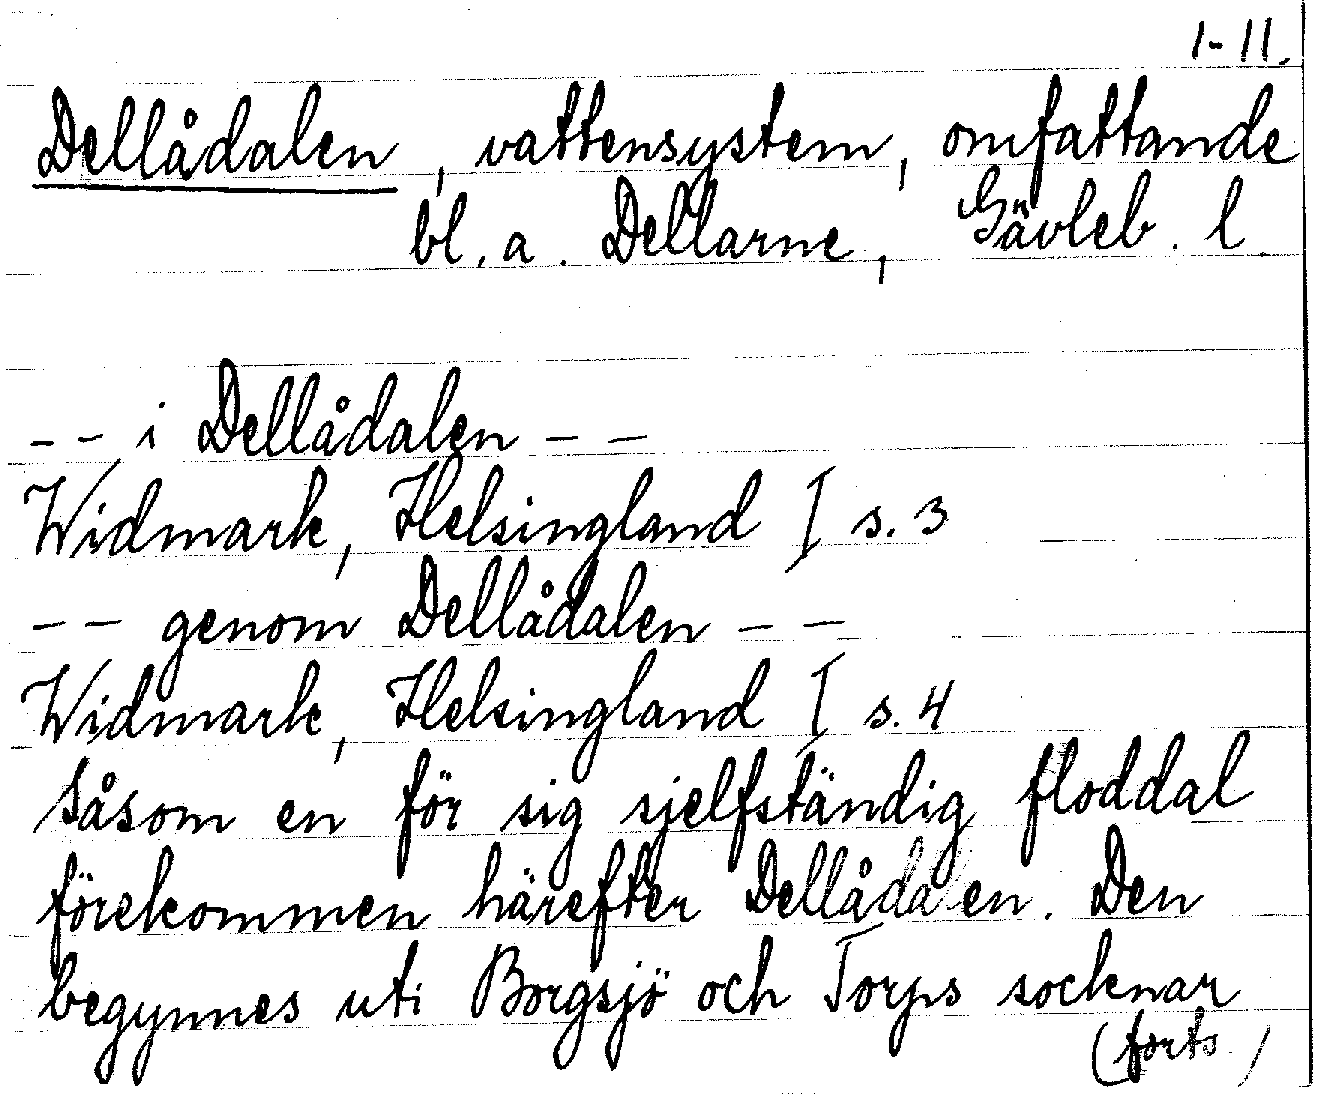 1-11.
Dellådalen, vattensystem, omfattande
bl. a. Dellarne, Gävleb. l
-- i Dellådalen --
Widmark, Helsingland I s. 3
-- genom Dellådalen --
Widmark, Helsingland I s. 4
Såsom en för sig sjelfständig floddal
förekommen härefter Dellådalen. Den
begynnes uti Borgsjö och Torps socknar
(forts.)